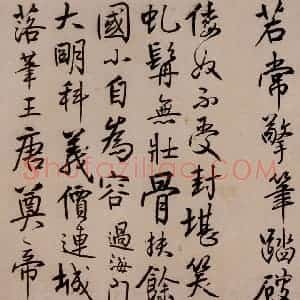 若常擎筆踏破
倭奴不受封堪笑
虬髯無壯骨扶餘
國小自為容過海門
大明科義價連城
落筆王唐奠帝
Shufaziliao.com